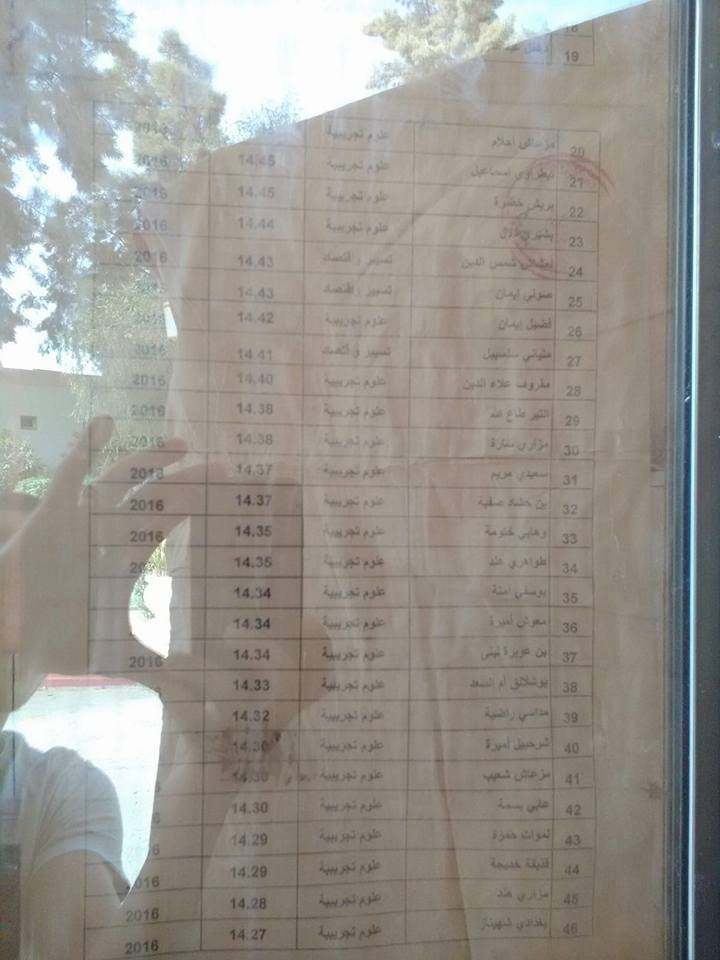 19
20 مزعاش أحلام علوم تجريبية 2016
21 اسماعيل علوم تجريبية 14.45 2016
22 بريش خضرة علوم تجريبية 14.45 2016
23 علوم تجريبية 14.44 2016
24 شمس الدين تسيير واقتصاد 14.43 2016
25 صوني إيمان تسيير واقتصاد 14.43
26 فضيل إيمان علوم تجريبية 14.42 2016
27 ملياني سلسبيل تسيير واقتصاد 14.41 2016
28 مقروف علاء الدين علوم تجريبية 14.40 2016
29 طاع الله علوم تجريبية 14.38 2016
30 مزاري سارة علوم تجريبية 14.38 2016
31 سعيدي مريم علوم تجريبية 14.37 2016
32 بن حشاد صفية علوم تجريبية 14.37 2016
33 وهابي ختومة علوم تجريبية 14.35 2016
34 طواهري هند علوم تجريبية 14.35
35 يوسفي آمنة علوم تجريبية 14.34
36 معوش أميرة علوم تجريبية 14.34
37 بن عويرة لبنى علوم تجريبية 14.34 2016
38 بوشلالق أم السعد علوم تجريبية 14.33
39 مداسي راضية علوم تجريبية 14.32
40 شرحبيل أميرة علوم تجريبية 14.30
41 مزعاش شعيب علوم تجريبية 14.30
42 عنابي بسمة علوم تجريبية 14.30
43 لموات حمزة علوم تجريبية 14.29
44 قذيفة خديجة علوم تجريبية 14.29
45 مزاري هند علوم تجريبية 14.28 2016
46 بغدادي شهيناز علوم تجريبية 14.27 2016